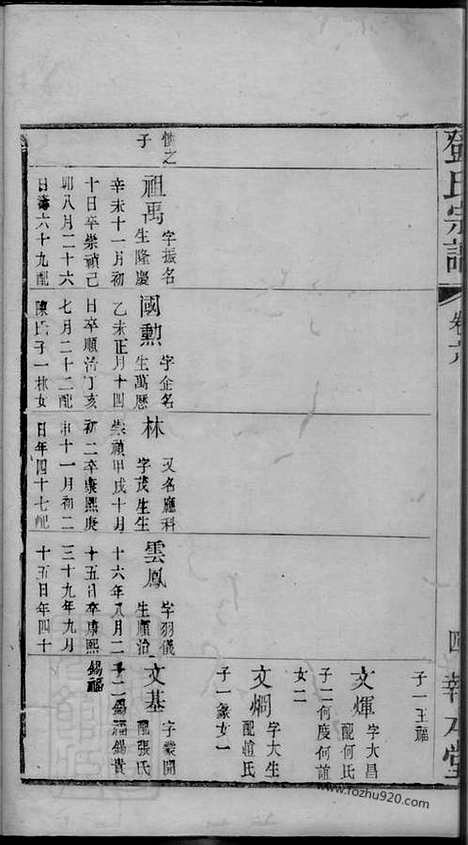 鄧氏宗譜
卷六
四
敦本堂
子一玉福
文煇
字大昌
配何氏
子二何度何誼
女二
文烱
字大生
配趙氏
子一錄女一
文基
字業開
配張氏
子二錫福錫貴
錫福
慎之
子
祖禹
字振名
生隆慶
辛未十一月初
十日卒崇禎己
卯八月二十六
日壽六十九配
國勲
字企名
生萬歷
乙未正月十四
日卒順治丁亥
七月二十二配
陳氏子一林女
林
又名應科
字茂生生
崇禎甲戌十月
初二卒康熙庚
申十一月初二
日年四十七配
雲鳳
字羽儀
生順治
十六年八月二
十五日卒康熙
三十九年九月
十五日年四十
www.fozhu920.com